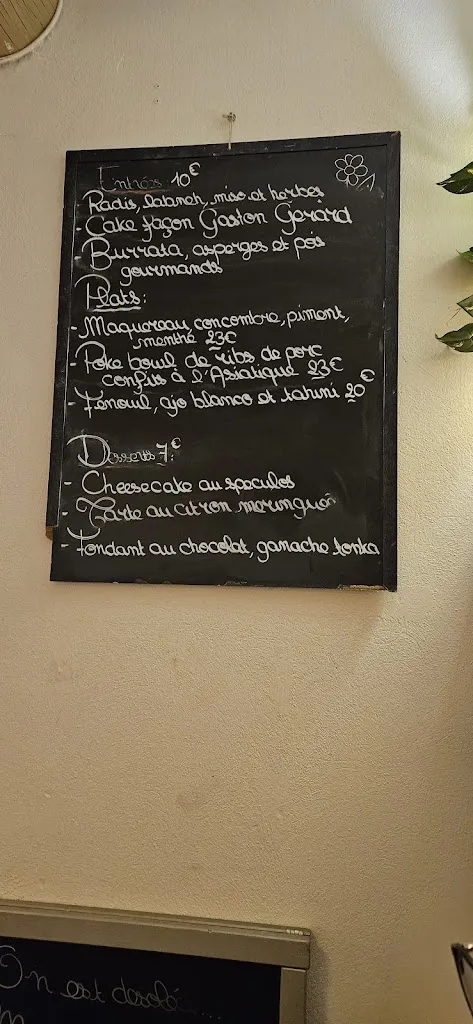 Entrées 10€
Radis, labneh, miso et herbes
- Cake façon Gaston Gérard
- Burrata, asperges et pois
gourmands
Plats:
- Maquereau, concombre, piment,
menthe 23€
- Poke bowl de ribs de porc
confits à l'Asiatique 23€
- Fenouil, ajo blanco et tahini 20€
Desserts 7€
- Cheesecake au speculos
- Tarte au citron meringuée
- Fondant au chocolat, ganache tonka
On est desolé.....